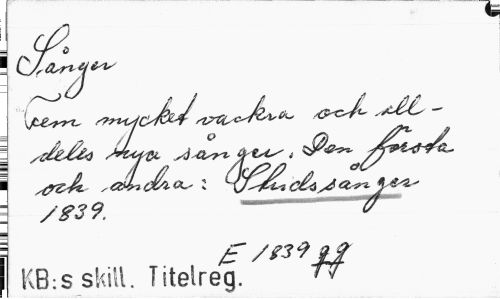 Sånger
Fem mycket vackra och all-
deles nya sånger. Den första
och andra: Skidssånger
1839.
E 1839 gg
KB:s skill. Titelreg.